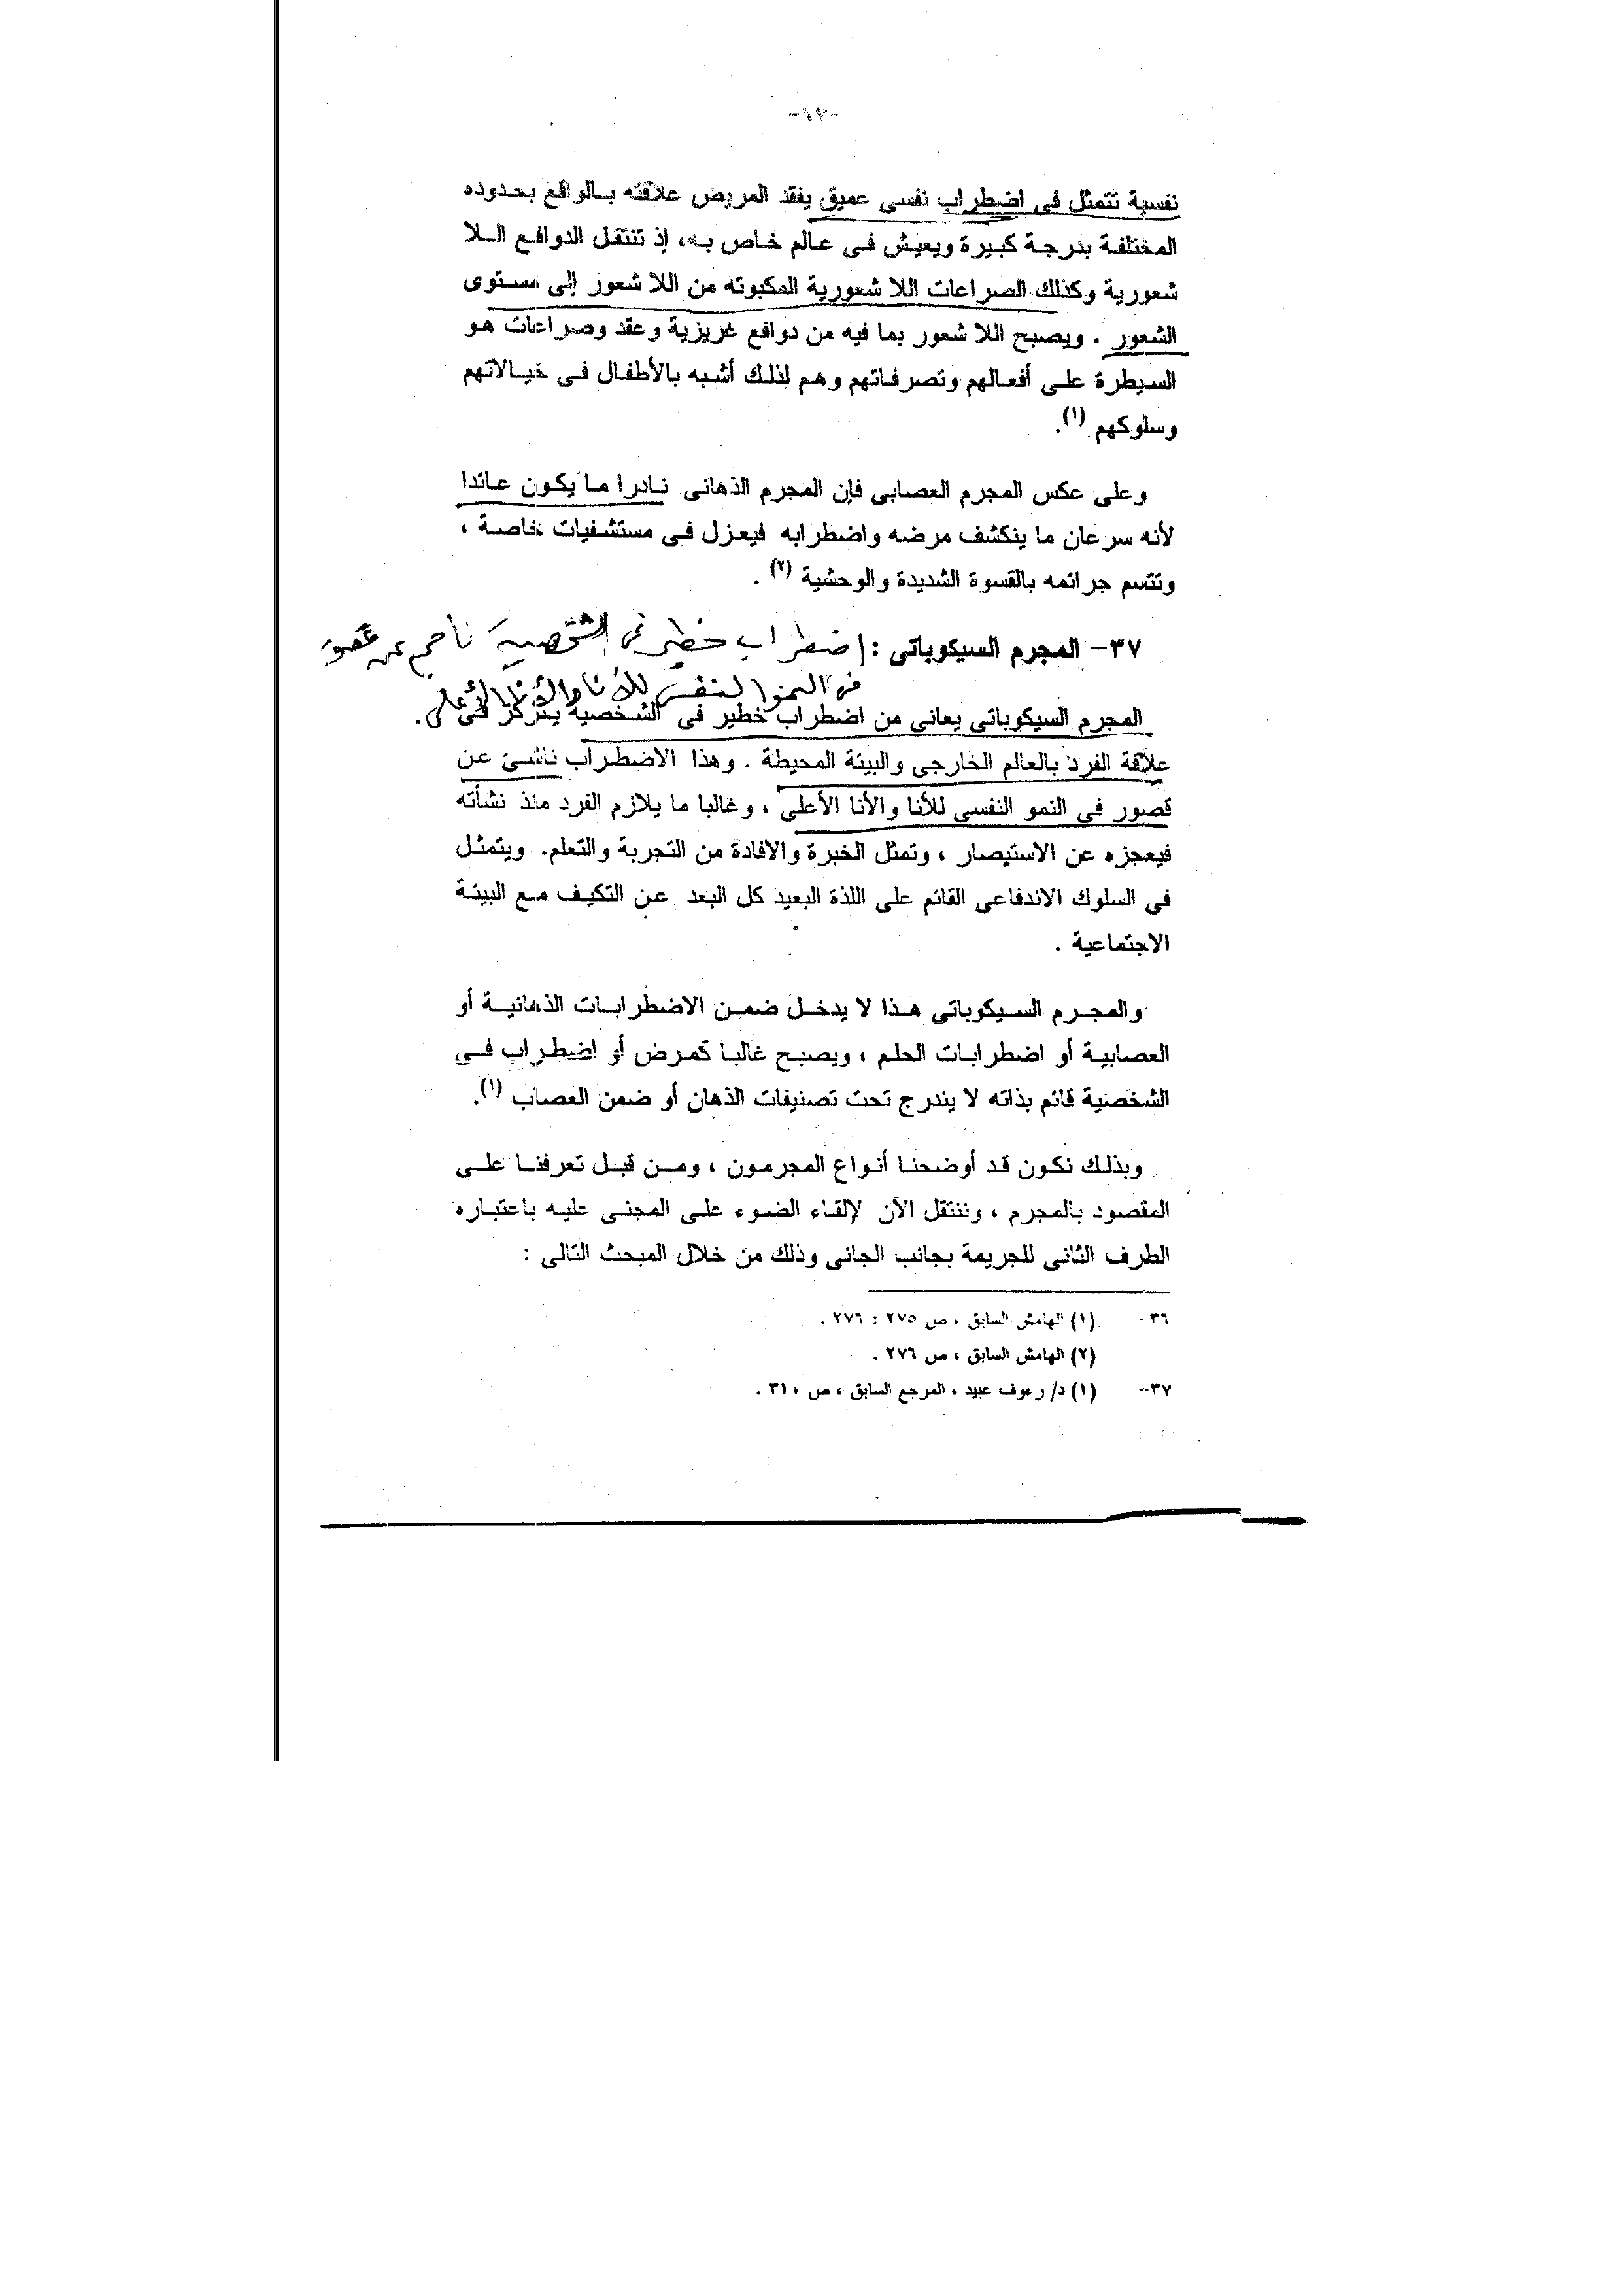 نفسية تتمثل فى اضطراب نفسى عميق يفقد المريض علاقته بالواقع بحدوده
المختلفة بدرجة كبيرة ويعيش فى عالم خاص به، إذ تنتقل الدوافع اللا
شعورية وكذلك الصراعات اللا شعورية المكبوته من اللا شعور إلى مستوى
الشعور . ويصبح اللا شعور بما فيه من دوافع غريزية وعقد وصراعات هو
السيطرة على أفعالهم وتصرفاتهم وهم لذلك أشبه بالأطفال فى خيالاتهم
وسلوكهم (١).
وعلى عكس المجرم العصابى فإن المجرم الذهانى نادرا ما يكون عائدا
لأنه سرعان ما ينكشف مرضه واضطرابه فيعزل فى مستشفيات خاصة ،
وتتسم جرائمه بالقسوة الشديدة والوحشية (٢) .
٣٧- المجرم السيكوباتى : اضطراب خطير فى الشخصية ناجم عن قصور
فى النمو النفسى للأنا والأنا الأعلى
المجرم السيكوباتى يعانى من اضطراب خطير فى الشخصية يتركز فى
علاقة الفرد بالعالم الخارجى والبيئة المحيطة . وهذا الاضطراب ناشئ عن
قصور فى النمو النفسى للأنا والأنا الأعلى ، وغالبا ما يلازم الفرد منذ نشأته
فيعجزه عن الاستيصار ، وتمثل الخبرة والافادة من التجربة والتعلم. ويتمثل
فى السلوك الاندفاعى القائم على اللذة البعيد كل البعد عن التكيف مع البيئة
الاجتماعية .
والمجرم السيكوباتى هذا لا يدخل ضمن الاضطرابات الذهانية أو
العصابية أو اضطرابات الحلم ، ويصبح غالبا كمرض أو اضطراب فى
الشخصية قائم بذاته لا يندرج تحت تصنيفات الذهان أو ضمن العصاب (١).
وبذلك نكون قد أوضحنا أنواع المجرمون ، ومن قبل تعرفنا على
المقصود بالمجرم ، وننتقل الآن لإلقاء الضوء على المجنى عليه باعتباره
الطرف الثانى للجريمة بجانب الجانى وذلك من خلال المبحث التالى :
٣٦- (١) الهامش السابق ، ص ٢٧٥ : ٢٧٦ .
(٢) الهامش السابق ، ص ٢٧٦ .
٣٧- (١) د/ رءوف عبيد ، المرجع السابق ، ص ٣١٠ .